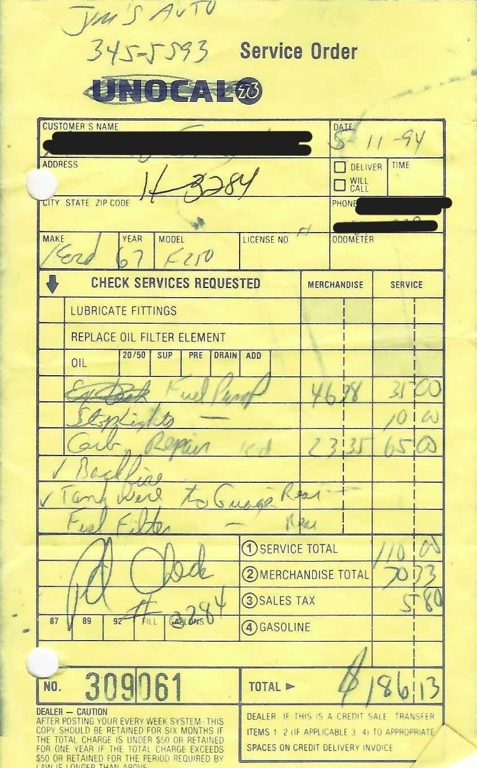 Jim's Auto
345-5593 Service Order
UNOCAL 76
CUSTOMER'S NAME
DATE
5-11-94
ADDRESS
DELIVER TIME
WILL CALL
# 3284
CITY STATE ZIP CODE
PHONE
MAKE YEAR MODEL LICENSE NO. ODOMETER
Ford 67 F250
CHECK SERVICES REQUESTED MERCHANDISE SERVICE
LUBRICATE FITTINGS
REPLACE OIL FILTER ELEMENT
OIL 20/50 SUP PRE DRAIN ADD
Fuel Pump 46.98 35 00
Stoplights — 10 00
Carb Repair Kit 23.35 65 00
✓ Backfire
✓ Tank Wire to Guage Rear —
Fuel Filter — Rear
1 SERVICE TOTAL 110 00
2 MERCHANDISE TOTAL 70 33
3 SALES TAX 5 80
4 GASOLINE
Pd Check
# 3284
87 89 92 FILL GALLONS
NO. 309061 TOTAL ► $186 13
DEALER — CAUTION
AFTER POSTING YOUR EVERY WEEK SYSTEM - THIS
COPY SHOULD BE RETAINED FOR SIX MONTHS IF
THE TOTAL CHARGE IS UNDER $50 OR RETAINED
FOR ONE YEAR IF THE TOTAL CHARGE EXCEEDS
$50 OR RETAINED FOR THE PERIOD REQUIRED
BY LAW IF LONGER THAN ABOVE.
DEALER IF THIS IS A CREDIT SALE TRANSFER
ITEMS 1 2 (IF APPLICABLE 3 4) TO APPROPRIATE
SPACES ON CREDIT DELIVERY INVOICE